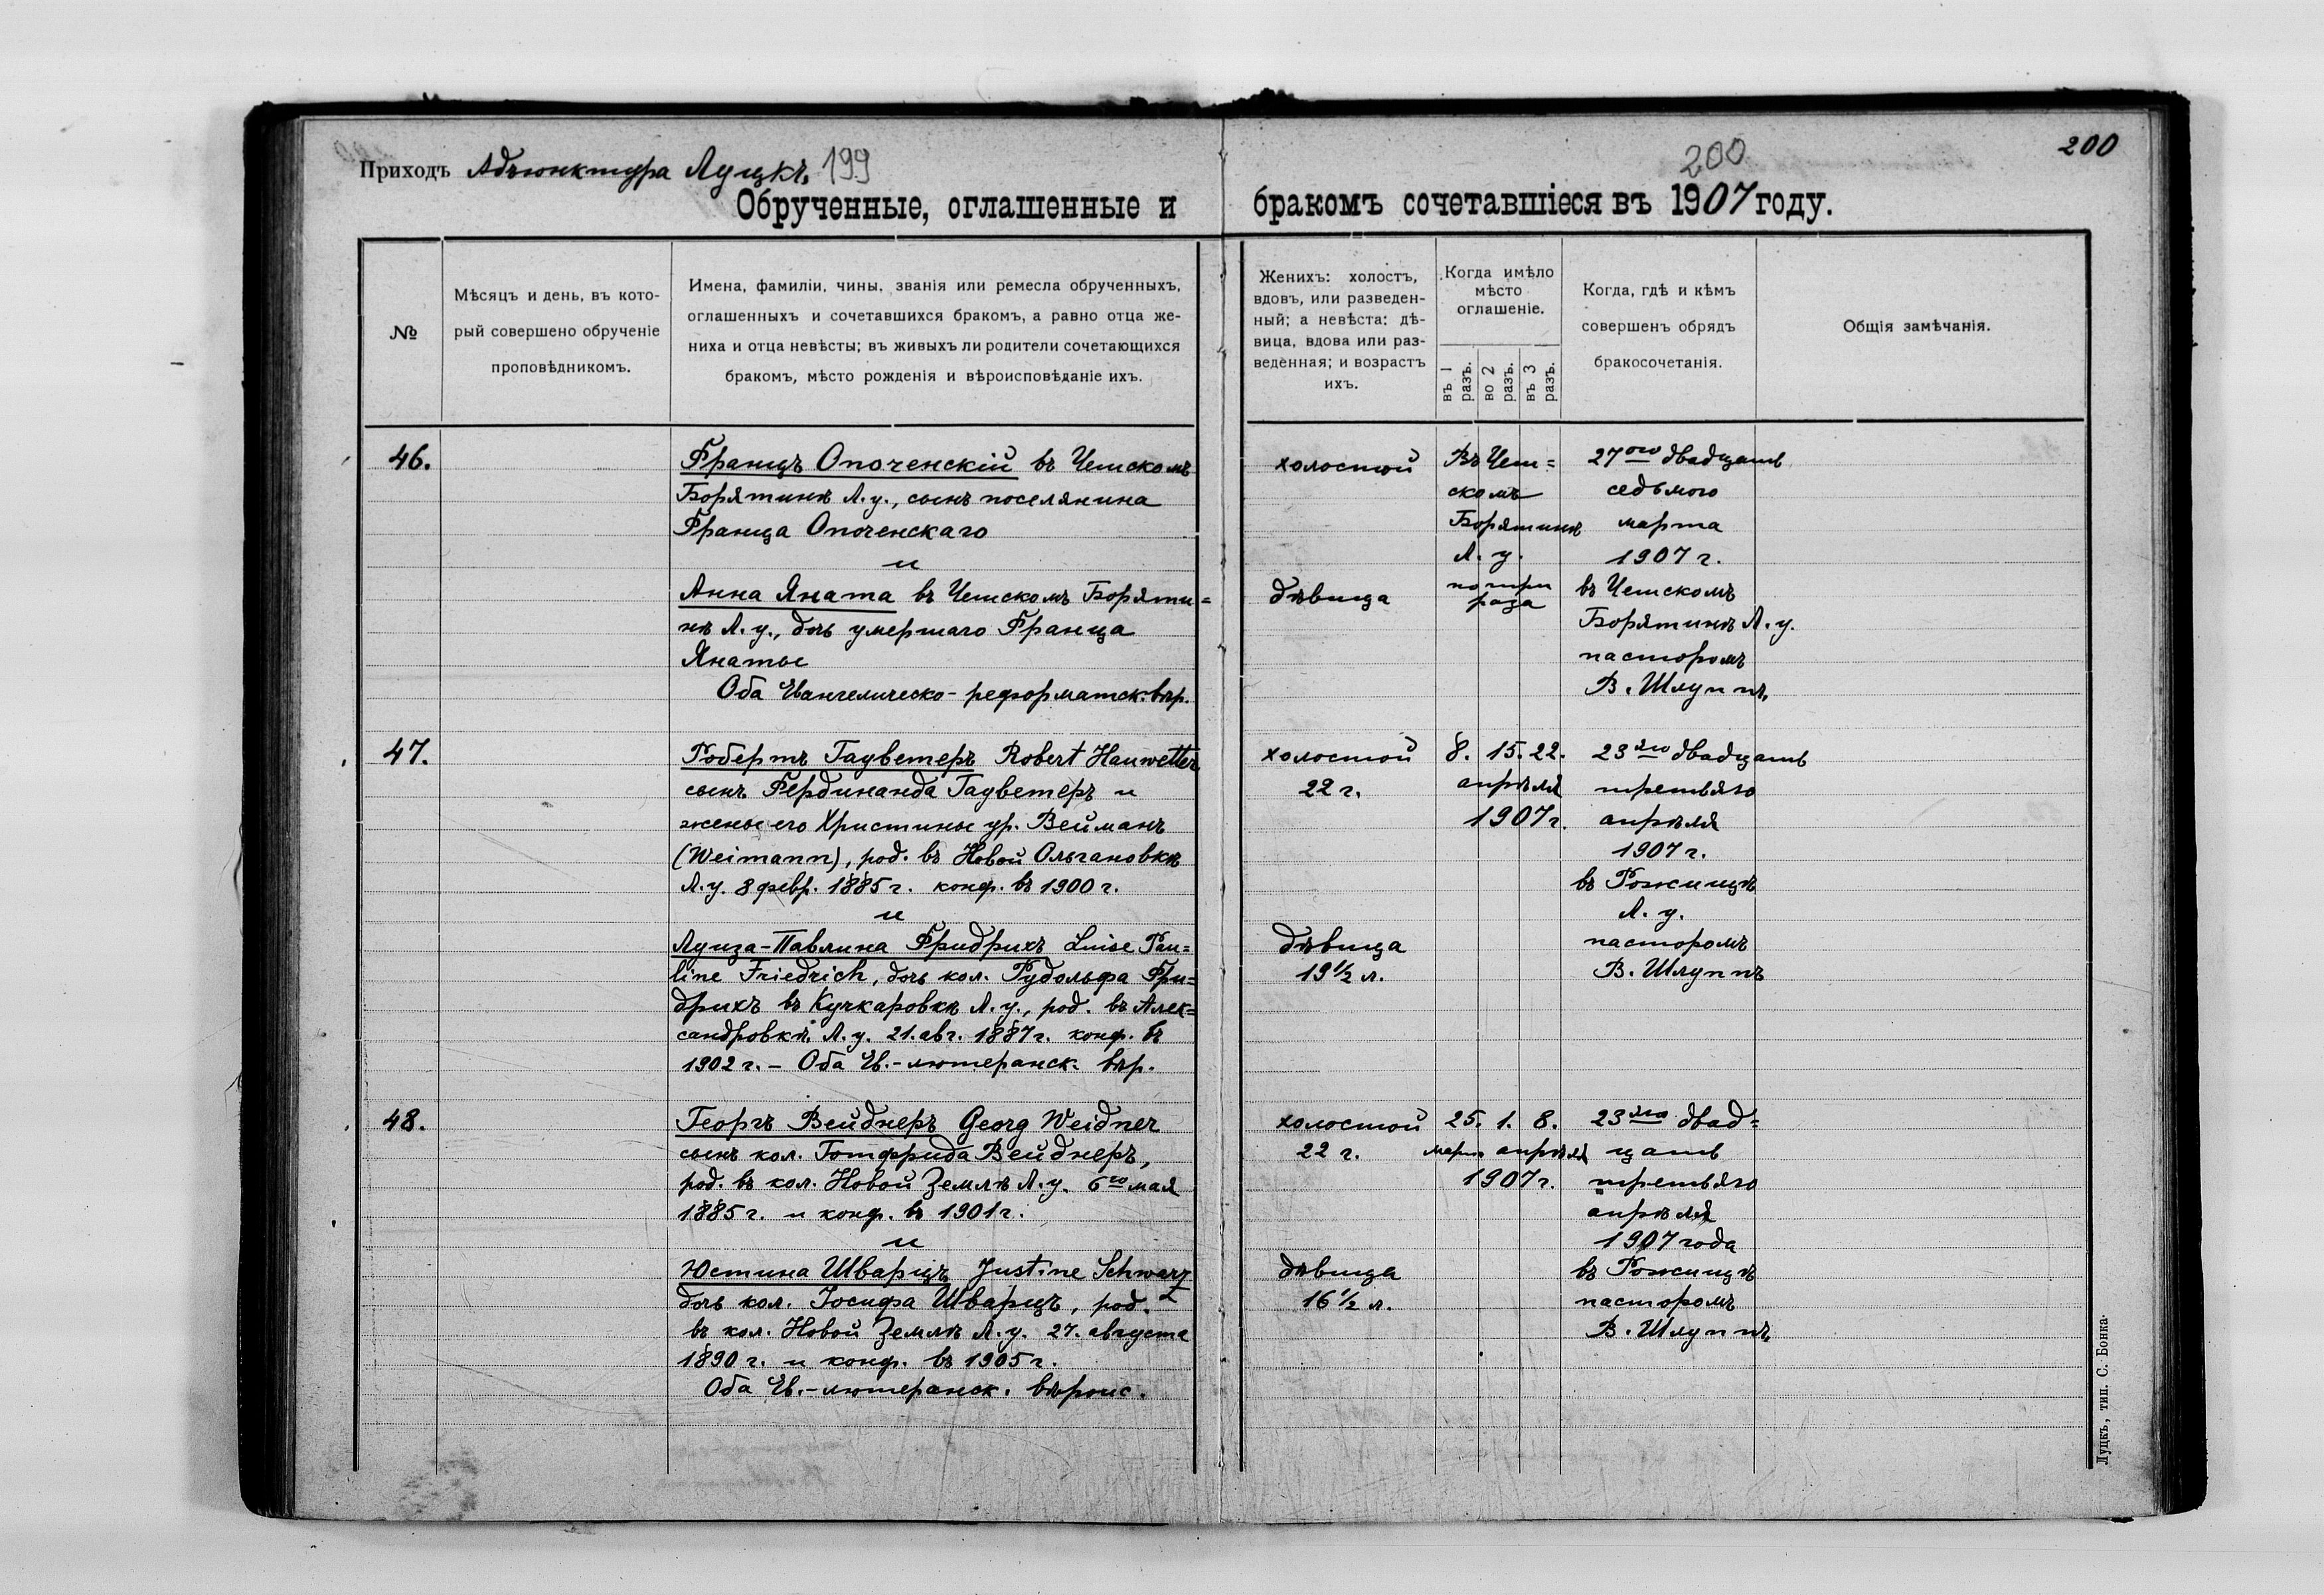 Приходъ Адъюнктура Луцкъ 199
200
200
Обрученные, оглашенные и бракомъ сочетавшіеся въ 1907 году.
№
Мѣсяцъ и день, въ кото-
рый совершено обрученіе
проповѣдникомъ.
Имена, фамиліи, чины, званія или ремесла обрученныхъ,
оглашенныхъ и сочетавшихся бракомъ, а равно отца же-
ниха и отца невѣсты; въ живыхъ ли родители сочетающихся
бракомъ, мѣсто рожденія и вѣроисповѣданіе ихъ.
Женихъ: холостъ,
вдовъ, или разведен-
ный; а невѣста: дѣ-
вица, вдова или раз-
веденная; и возрастъ
ихъ.
Когда имѣло
мѣсто
оглашеніе.
въ 1 разъ.
во 2 разъ.
въ 3 разъ.
Когда, гдѣ и кѣмъ
совершенъ обрядъ
бракосочетанія.
Общія замѣчанія.
46.
Францъ Опоченскій въ Чешскомъ
Борятинѣ Л.у., сынъ поселянина
Франца Опоченскаго
и
Анна Яната въ Чешскомъ Боряти=
нѣ Л.у., дочь умершаго Франца
Янаты
Оба Евангелическо-реформатск. вѣр.
холостой
дѣвица
Въ Чеш=
скомъ
Борятинѣ
Л. у.
по три
раза
27ого двадцать
седьмого
марта
1907 г.
въ Чешскомъ
Борятинѣ Л.у.
пасторомъ
В. Шлуппъ
47.
Робертъ Гауветеръ Robert Hauwetter
сынъ Фердинанда Гауветеръ и
жены его Христины ур. Вейманъ
(Weimann), род. въ Новой Ольгановкѣ
Л.у. 8 февр. 1885 г. конф. въ 1900 г.
и
Луиза-Павлина Фридрихъ Luise Pau=
line Friedrich, дочь кол. Рудольфа Фри=
дрихъ въ Кучкаровкѣ Л.у., род. въ Алек=
сандровкѣ Л.у. 21. авг. 1887 г. конф. въ
1902 г. – Оба Ев.-лютеранск. вѣр.
холостой
22 г.
дѣвица
19 ½ л.
8. 15. 22.
апрѣля
1907 г.
23его двадцать
третьяго
апрѣля
1907 г.
въ Рожищѣ
Л. у.
пасторомъ
В. Шлуппъ
48.
Георгъ Вейднеръ Georg Weidner
сынъ кол. Готфрида Вейднеръ,
род. въ кол. Новой Землѣ Л.у. 6го мая
1885 г. и конф. въ 1901 г.
и
Юстина Шварцъ Justine Schwarz
дочь кол. Іосифа Шварцъ, род.
въ кол. Новой Землѣ Л.у. 27. августа
1890 г. и конф. въ 1905 г.
Оба Ев.-лютеранск. вѣроис.
холостой
22 г.
дѣвица
16 ½ л.
25. 1. 8.
марта апрѣля
1907 г.
23его двад=
цать
третьяго
апрѣля
1907 года
въ Рожищѣ
пасторомъ
В. Шлуппъ
Луцкъ, тип. С. Бонка.